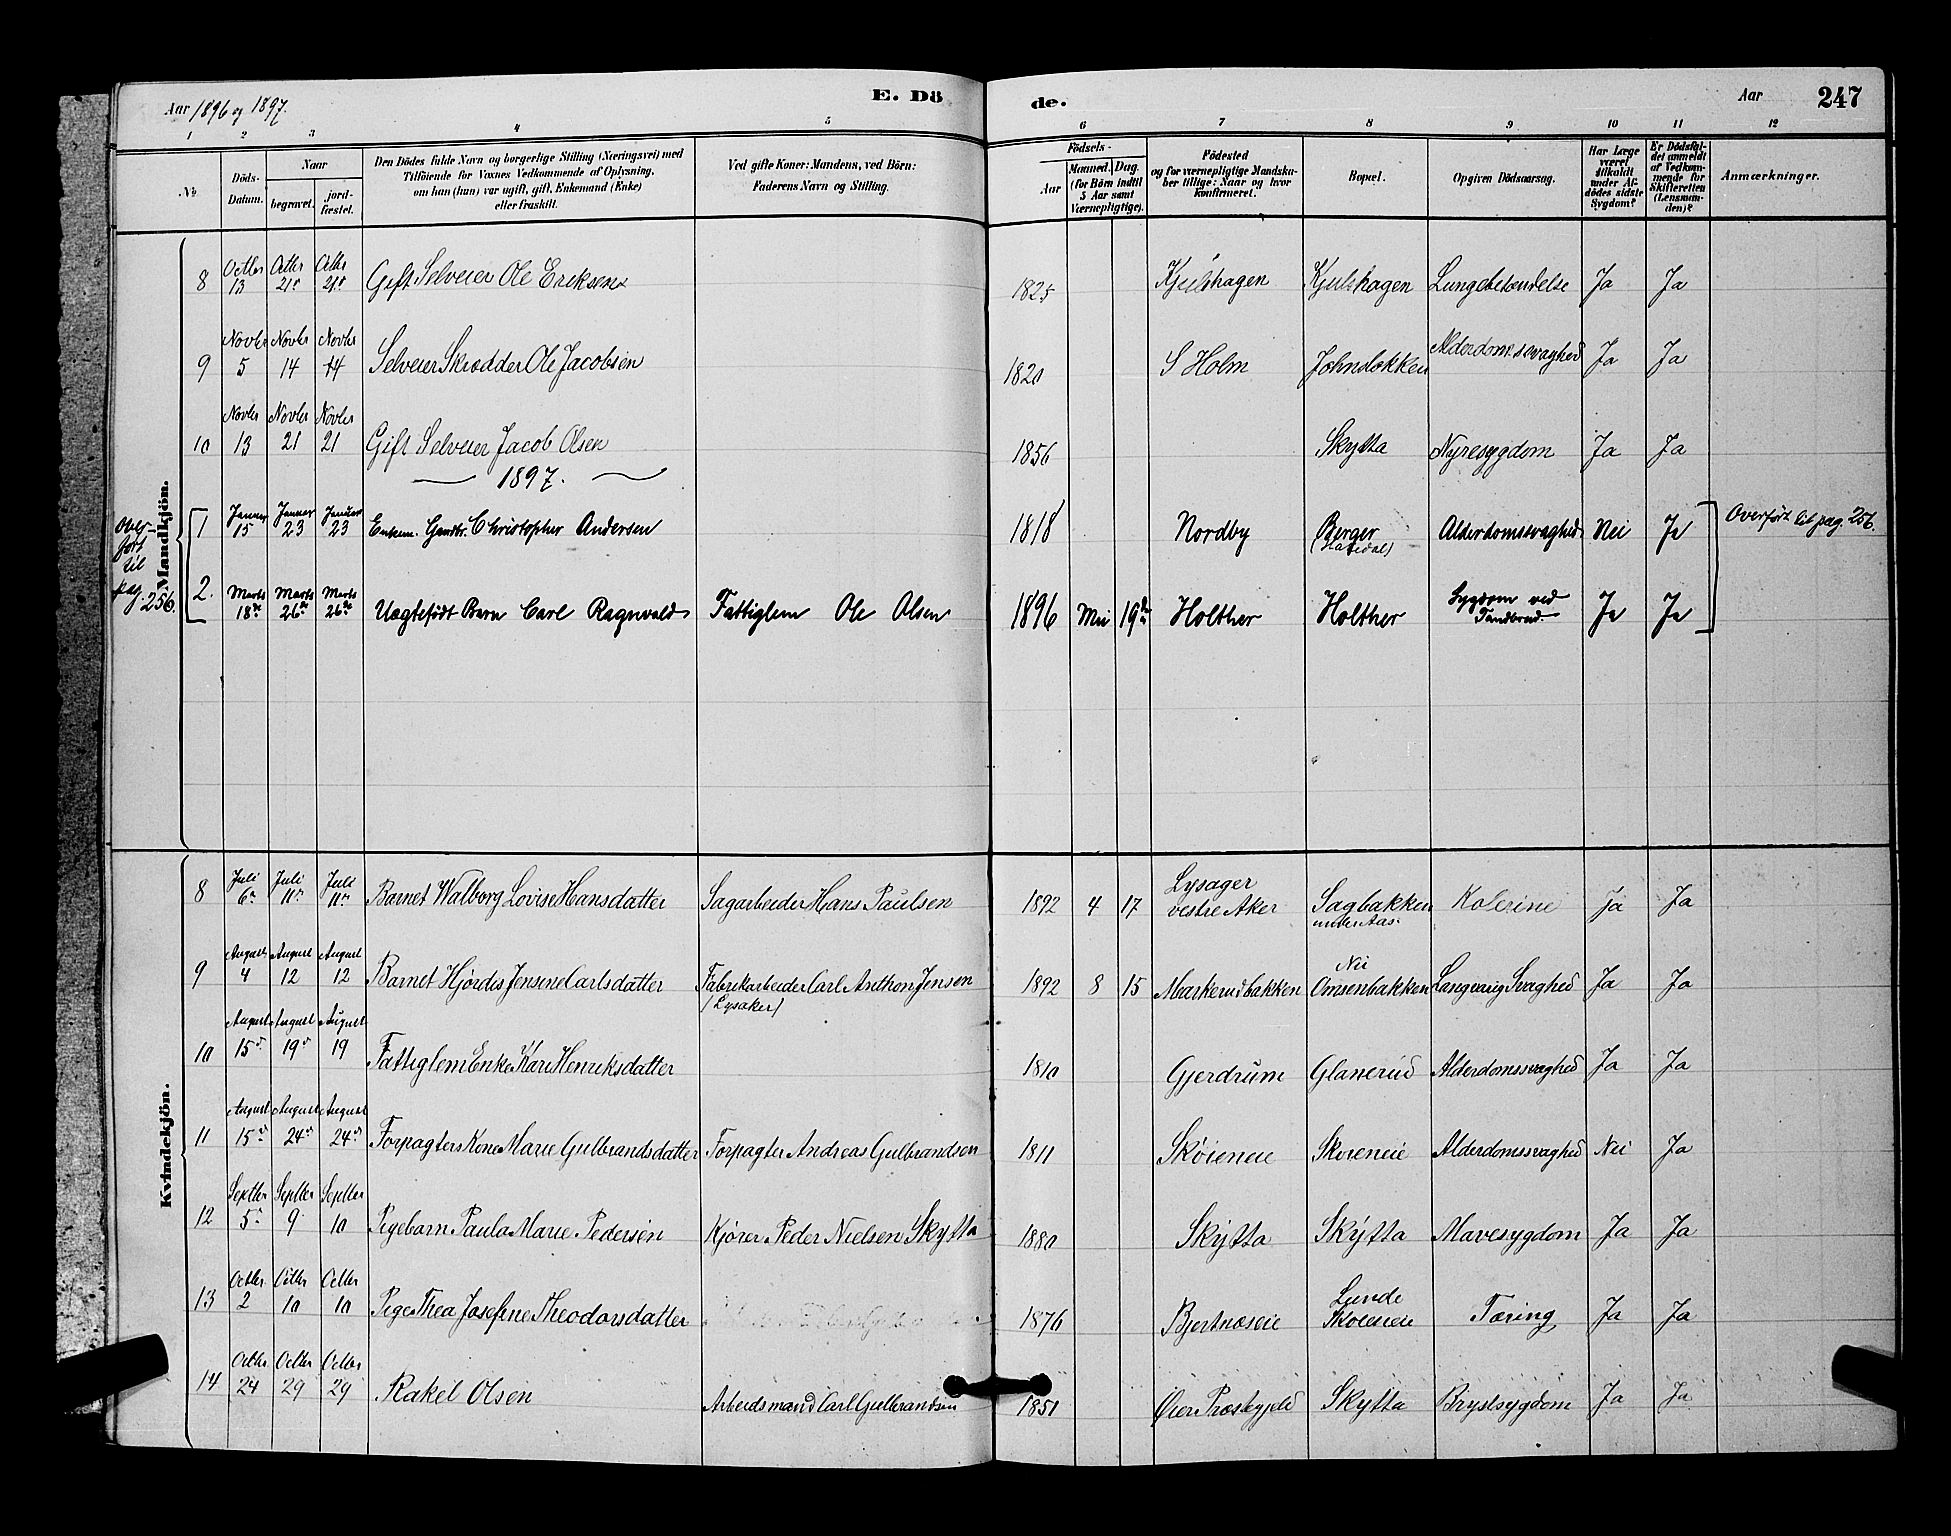 Aar 1896 og 1897.
E. Dö
de.
Aar
247
1 2 3 4 5 6 7 8 9 10 11 12
No
Döds-Datum.
Naar
begravet.
jord-fæstet.
Den Dödes fulde Navn og borgerlige Stilling (Næringsvei) med
Tilföiende for Voxnes Vedkommende af Oplysning,
om han (hun) var ugift, gift, Enkemand (Enke)
eller fraskilt.
Ved gifte Koner: Mandens, ved Börn:
Faderens Navn og Stilling.
Födsels-
Aar
Maaned. Dag.
(for Börn indtil
5 Aar samt
Værnepligtige).
Födested
og for værnepligtige Mandska-
ber tillige: Naar og hvor
konfirmeret.
Bopæl.
Opgiven Dödsaarsag.
Har Læge
været
tilkaldt
under Af-
dödes sidste
Sygdom?
Er Dödsfal-
det anmeldt
af Vedkom-
mende for
Skifteretten
(Lensman-
den)?
Anmærkninger.
Mandkjön.
8 Octbr 13 Octbr 21 Octbr 21 Gift Selveier Ole Eriksen 1825 Kjulshagen Kjulshagen Lungebetændelse Ja Ja
9 Novbr 5 Novbr 14 Novbr 14 Selveier Skrædder Ole Jacobsen 1820 S Holm Johnsløkken Alderdomssvaghed Ja Ja
10 Novbr 13 Novbr 21 Novbr 21 Gift Selveier Jacob Olsen 1856 Skytta Nyresygdom Ja Ja
1897.
Overført til pag. 256.
1 Januar 15 Januar 23 Januar 23 Enkem. Gaardbr. Christopher Andersen 1818 Nordby Berger Alderdomssvaghed Nei Ja Overført til pag. 256.
2. Marts 18de Marts 26de Marts 26de Uægtefödt Barn Carl Ragnvald Fattiglem Ole Olsen 1896 Mai 19de Holther Holther Sygdom ved Tandbrud. Ja Ja
Kvindekjön.
8 Juli 6 Juli 11 Juli 11 Barnet Walborg Lovise Hansdatter Sagarbeider Hans Paulsen 1892 4 17 Lysager vestre Aker Sagbakken under Aas Kolerine Ja Ja
9 August 4 August 12 August 12 Barnet Hjördis Jensine Carlsdatter Fabrikarbeider Carl Anthon Jensen (Lysaker) 1892 8 15 Markerudbakken Omsenbakken Langvarig Svaghed Ja Ja
10 August 15 August 19 August 19 Fattiglem Enke Kari Henriksdatter 1810 Gjerdrum Glanerud Alderdomssvaghed Ja Ja
11 August 15 August 24 August 24 Forpagters Kone Marie Gulbrandsdatter Forpagter Andreas Gulbrandsen 1811 Skøieneie Skøieneie Alderdomssvaghed Nei Ja
12 Septbr 5 Septbr 9 Septbr 10 Pigebarn Paula Marie Pedersen Kjører Peder Nielsen Skytta 1880 Skytta Skytta Mavesygdom Ja Ja
13 Octbr 2 Octbr 10 Octbr 10 Pige Thea Josefine Theodorsdatter 1876 Bjertnæseie Lunde Skøieneie Tæring Ja Ja
14 Octbr 24 Octbr 29 Octbr 29 Rakel Olsen Arbeidsmand Carl Gulbrandsen 1851 Øier Præstegjeld Skytta Brystsygdom Ja Ja